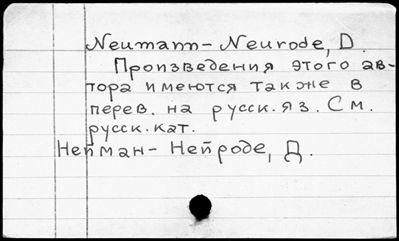 Neumann-Neurode, D.
Произведения этого ав-
тора имеются также в
перев. на русск. яз. См.
русск. кат.
Нейман-Нейроде, Д.